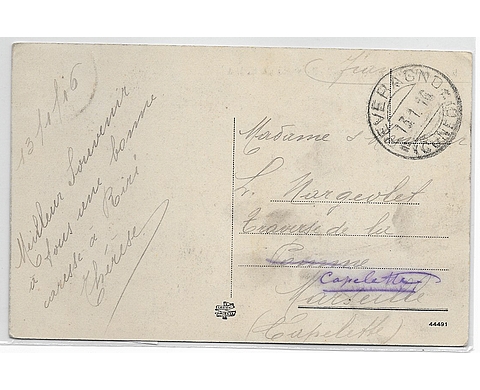 13/1/16
Meilleur Souvenir
à tous une bonne
caresse à Riri
Thérèse
PEVERAGNO
13.1.16
(CUNEO)
Madame
L. Nargeolet
Traverse de la
Comune
Capelette
Marseille
(Capelette)
44491